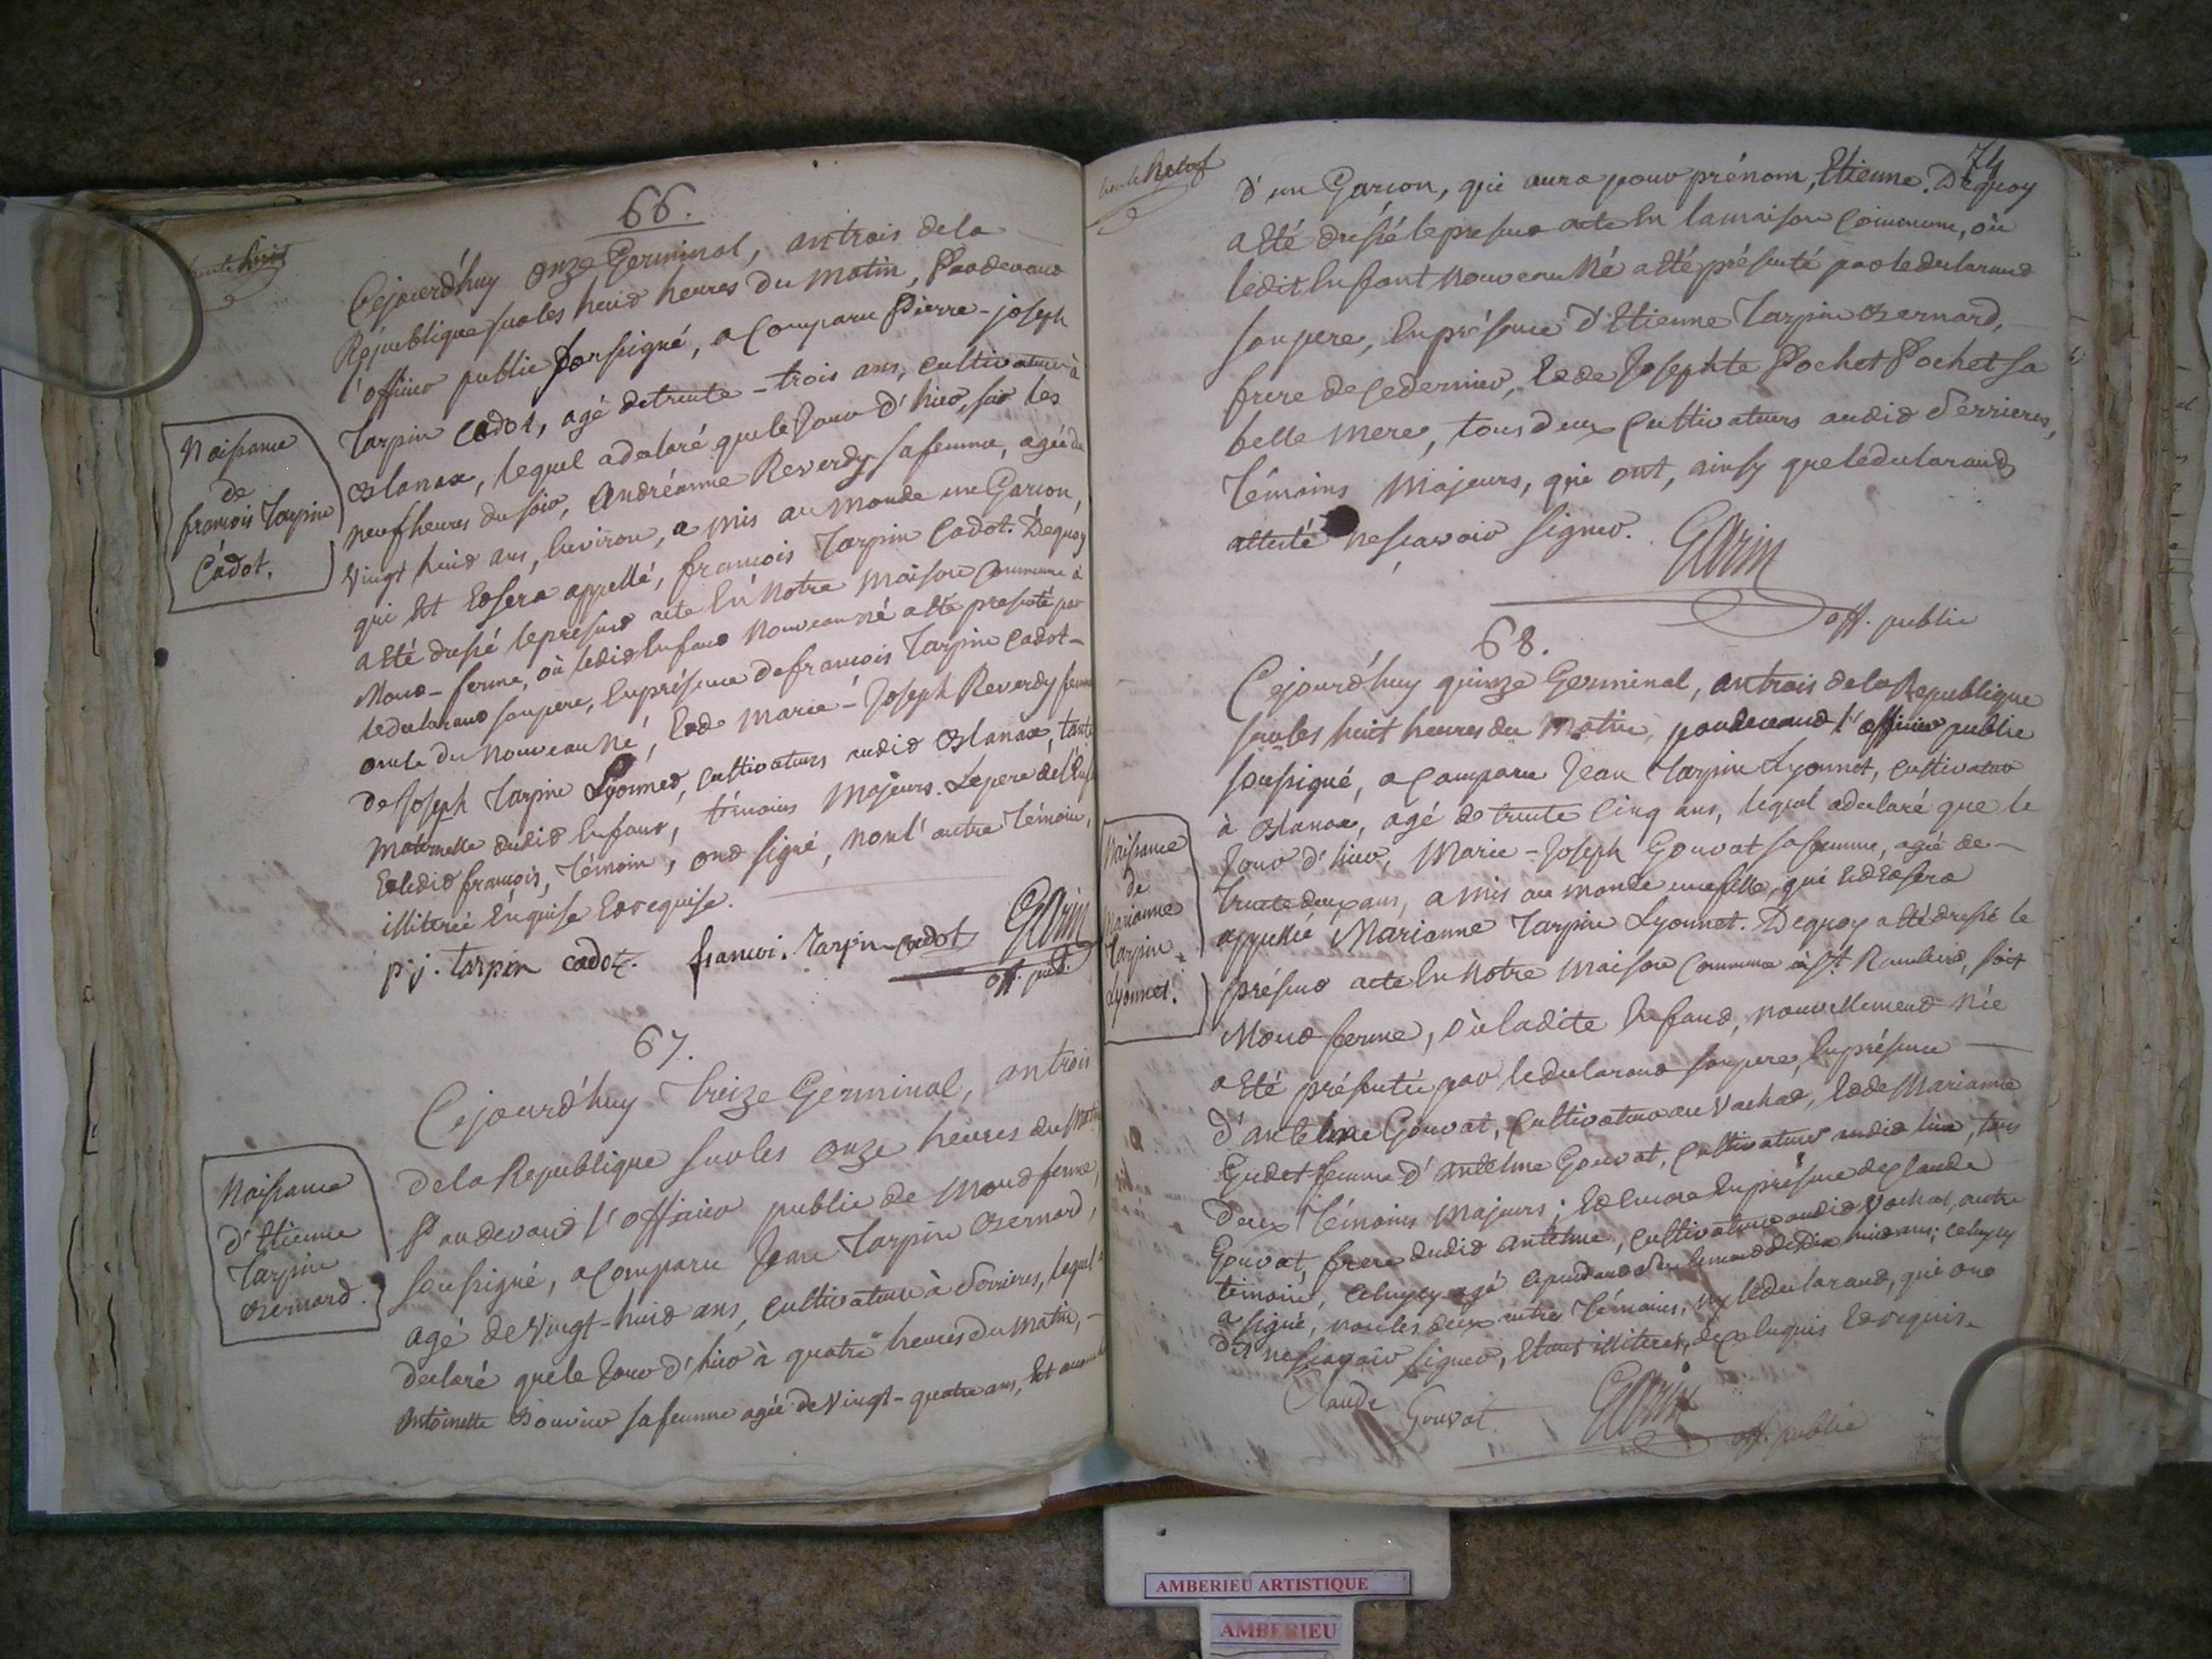 66.
Cejourd'huy onze Germinal, an trois de la
République sur les huit heures du matin, Pardevant
l'officier public soussigné, a Comparu Pierre-joseph
Tarpin Cadot, agé de trente-trois ans, cultivateur à
Blanax, lequel a déclaré que le Jour d'hier, sur les
neuf heures du soir, Andréanne Reverdy sa femme, agée de
Vingt huit ans, Environ, a mis au monde un Garcon,
qui Est Et sera appellé, francois Tarpin Cadot. Dequoy
a Eté dressé le present acte En Notre Maison Commune à
Mont-ferme, où ledit Enfant Nouveau né a Eté presenté par
le declarant son pere, En présence de francois Tarpin Cadot-
oncle du Nouveau Né, Et de Marie-Joseph Reverdy femme
de Joseph Tarpin Lyonnet, cultivateurs audit Blanax, tante
maternelle dudit Enfant, témoins Majeurs. Le pere de l'Enfant
Et ledit francois, Témoin, ont signé, non l'autre Témoin,
illiterée Enquise Et requise.
p. j. tarpin cadot. francoi. Tarpin cadot Garin
off. pub.
Naissance
de
francois Tarpin
Cadot.
67.
Cejourd'huy Treize Germinal, an trois
de la Republique sur les onze heures du Matin
Pardevant l'officier public de Mont ferme,
soussigné, a Comparu Jean Tarpin Bernard,
agé de Vingt-huit ans, cultivateur à Serrieres, lequel a
declaré que le Jour d'hier à quatre heures du Matin,-
Antoinette Bouvier sa femme agée de Vingt-quatre ans, Est
Naissance
d'Etienne
Tarpin
Bernard.
74
d'un Garcon, qui aura pour prénom, Etienne. Dequoy
a Eté dressé le present acte En la maison Commune, où
ledit Enfant Nouveau Né a Eté présenté par le declarant
son pere, En présence d'Etienne Tarpin Bernard,
frere de ce dernier, Et de Josephte Pochet Pochet sa
belle Mere, tous deux Cultivateurs audit Serrieres,
Témoins Majeurs, qui ont, ainsy que le declarant
attesté ne scavoir signer. Garin
off. public
68.
Cejourd'huy quinze Germinal, an trois de la Republique
sur les huit heures du Matin, pardevant l'officier public
soussigné, a Comparu Jean Tarpin Lyonnet, cultivateur
à Blanax, agé de trente Cinq ans, lequel a declaré que le
Jour d'hier, Marie-Joseph Gouvat sa femme, agée de-
trente deux ans, a mis au monde une fille, qui Est Et sera
appellée Marianne Tarpin Lyonnet. Dequoy a Eté dressé le
présent acte En Notre Maison Commune à St. Rambert, soit
Mont ferme, où ladite Enfant, nouvellement Née
a Eté présentée par le declarant son pere, En présence
d'antelme Gouvat, Cultivateur au Vachat, Et de Marianne
Gudet femme d'antelme Gouvat, Cultivateur audit lieu, tous
deux Témoins Majeurs; Et Encore En présence de Claude
Gouvat, frere dudit antelme, Cultivateur audit Vachat, autre
témoin, celuycy agé cependant seulement de Dix huit ans; Celuycy
a signé, non les deux autres Témoins, ny le declarant, qui ont
dit ne scavoir signer, Etant illiterés, de ce Enquis Et requis.
Claude Gouvat Garin
off. public
Naissance
de
Marianne
Tarpin
Lyonnet.
AMBERIEU ARTISTIQUE
AMBERIEU